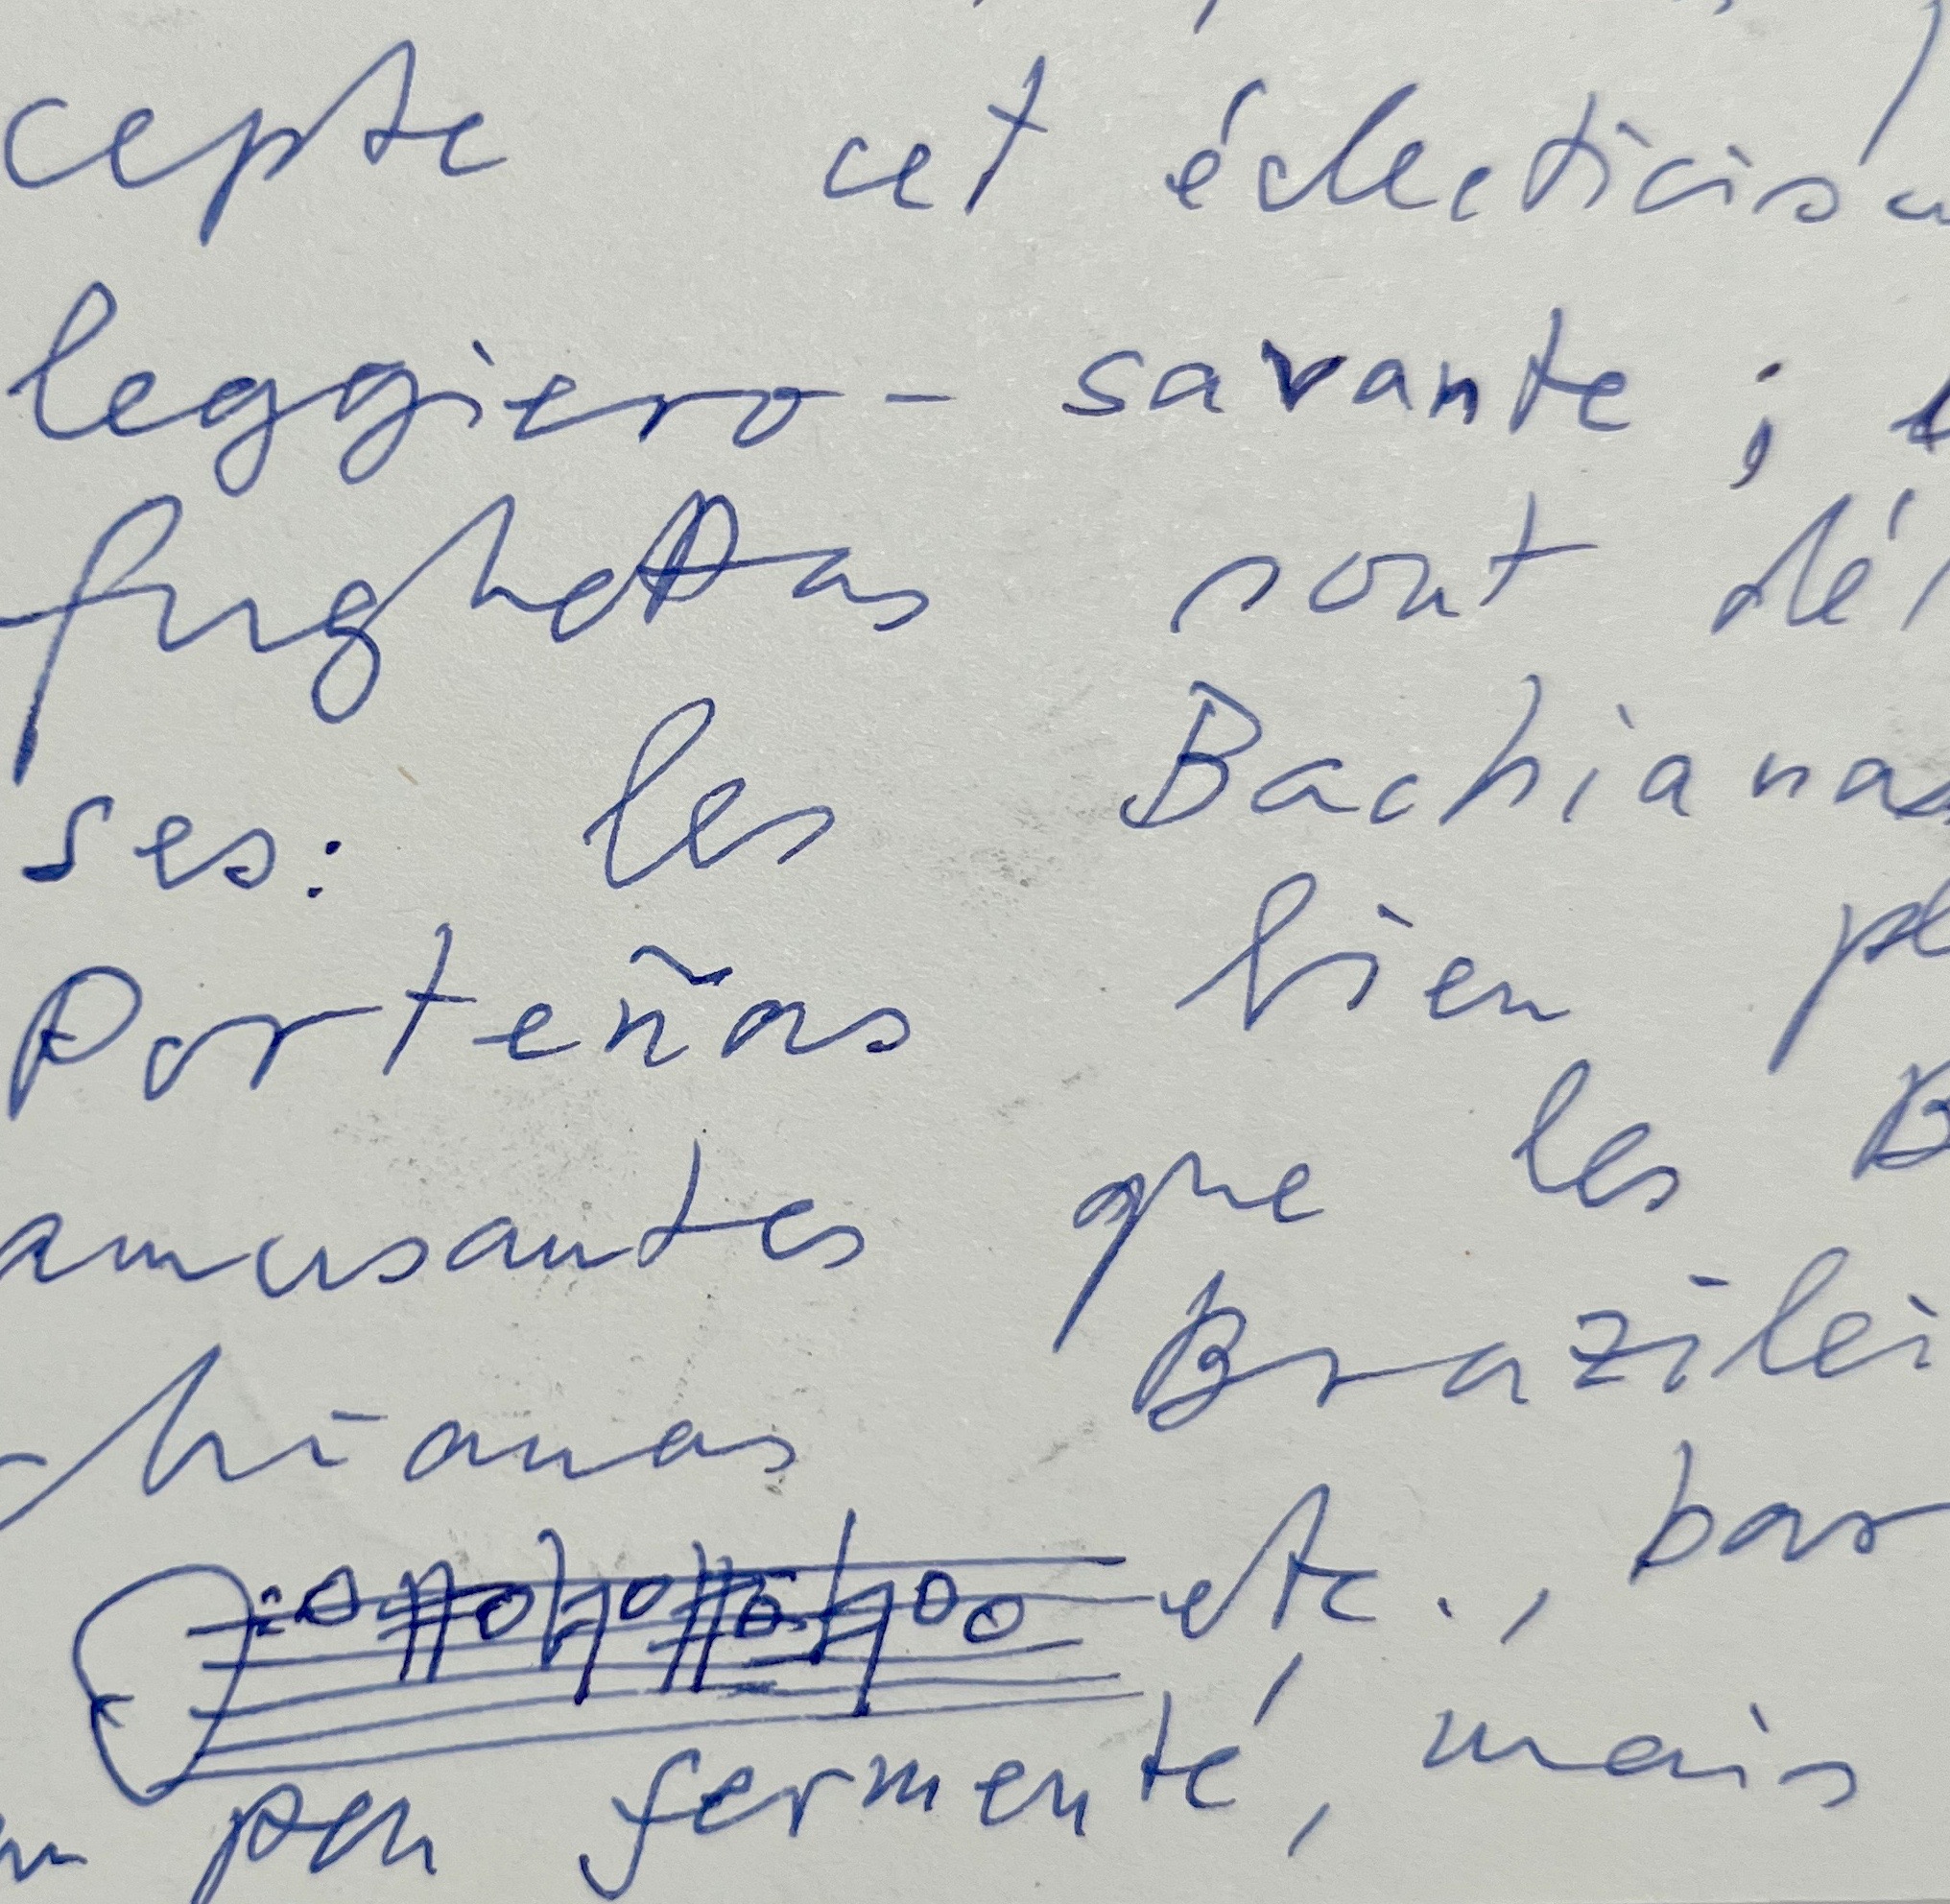 cepte cet éclecticis
leggiero - savante ;
fughettas sont dé
ses: les Bachianas
Porteñas bien pl
amusantes que les B
chianas Brazilei
etc., bar
un peu fermenté, mais